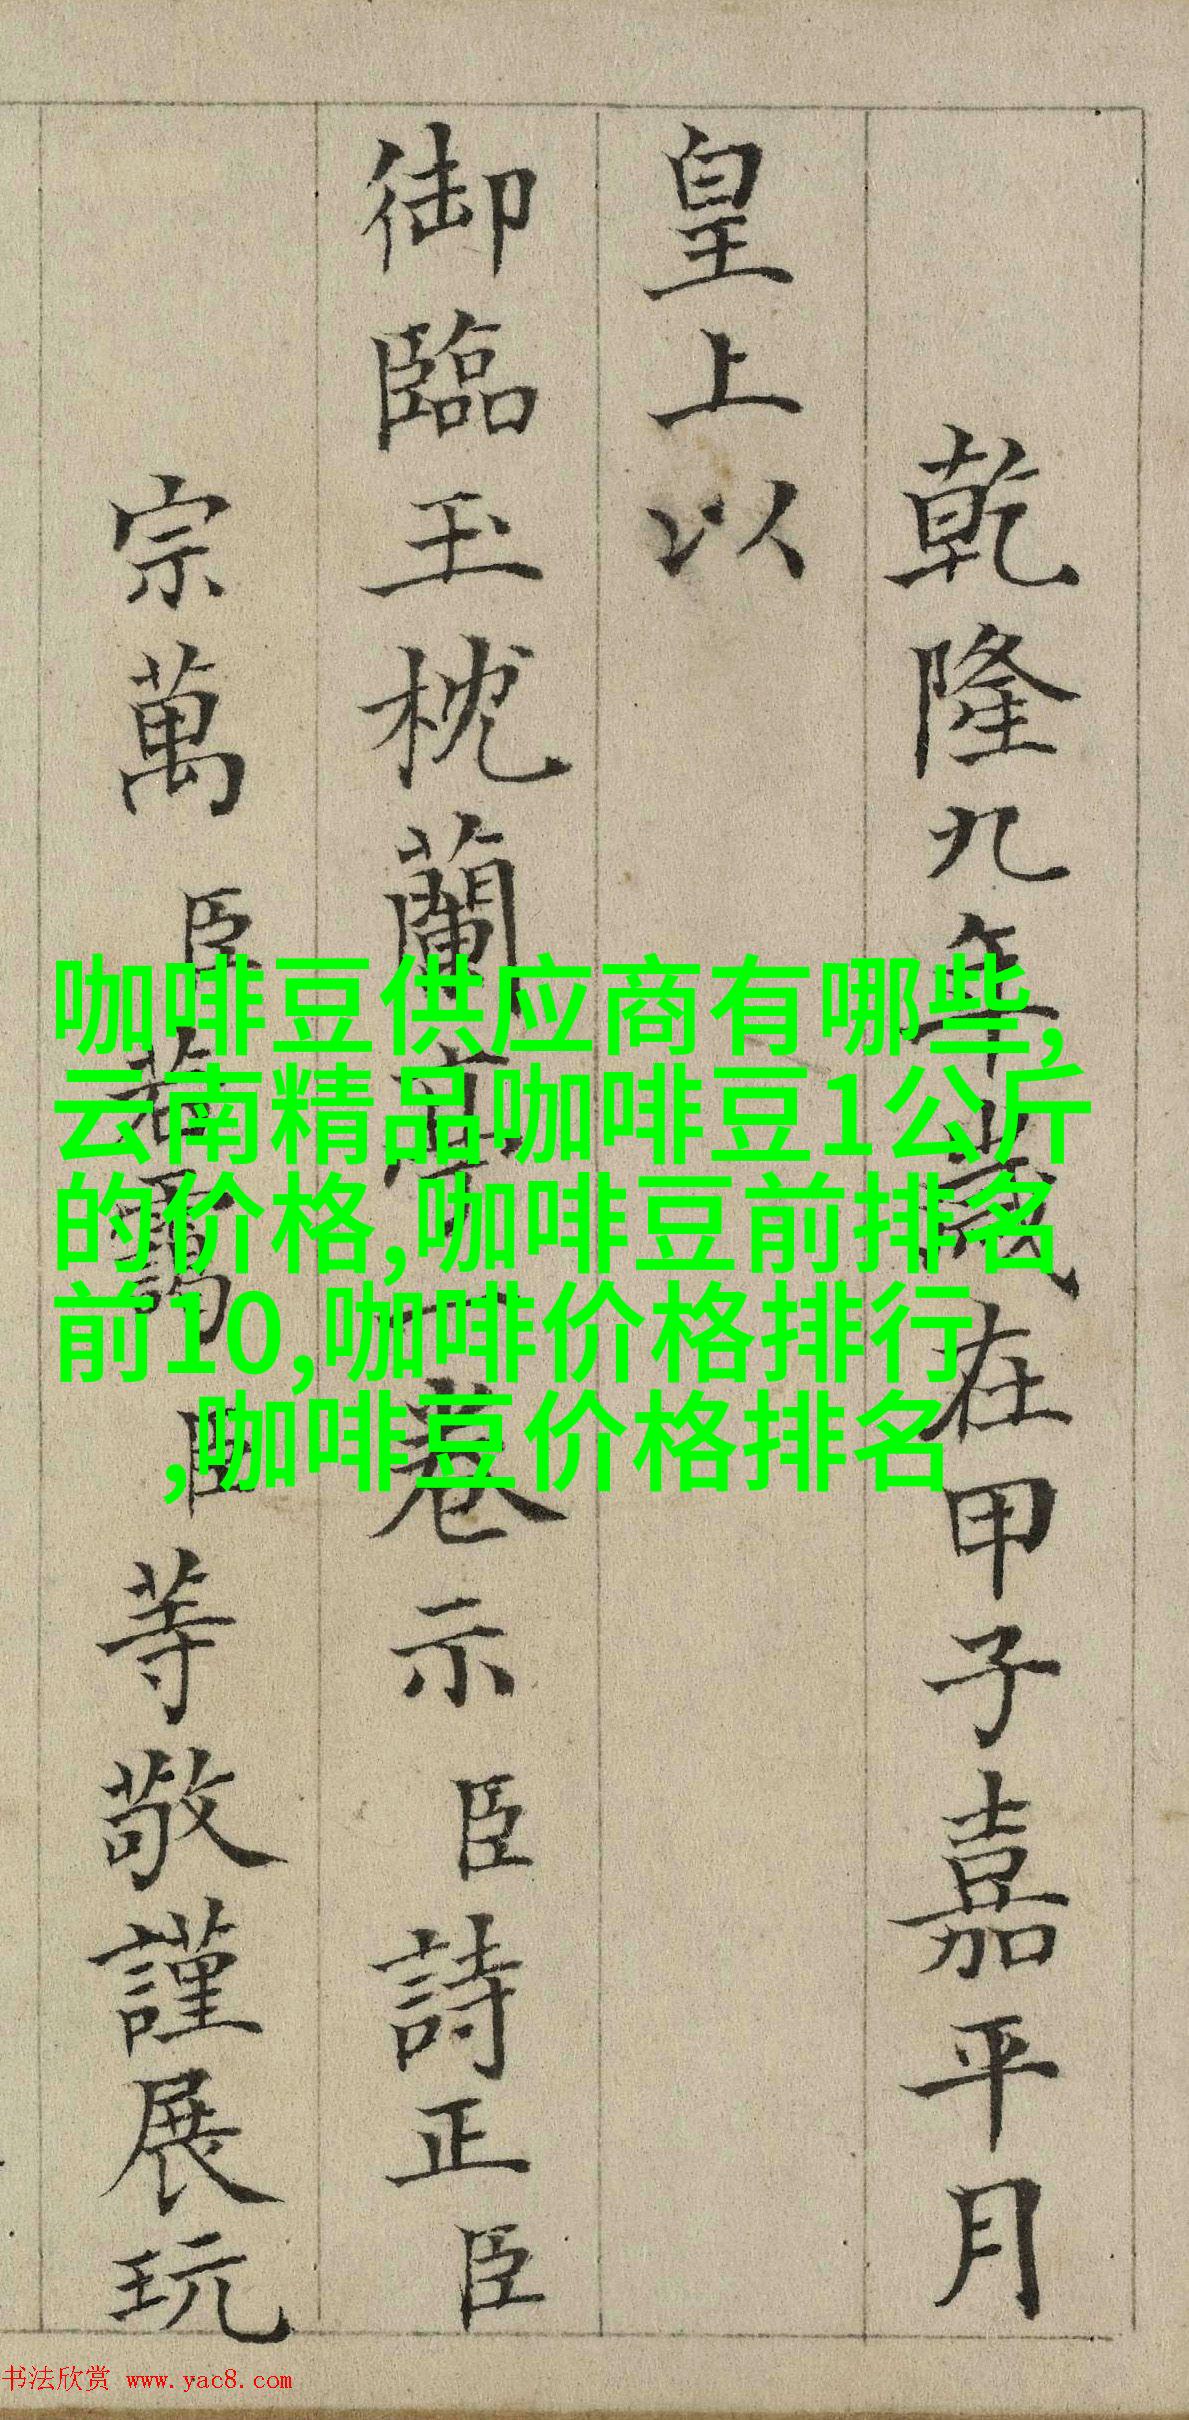 乾隆九年歲在甲子嘉平月
皇上以
御臨玉枕蘭亭一卷示臣詩正臣
宗萬臣若靄臣等敬謹展玩
咖啡豆供应商有哪些,
云南精品咖啡豆1公斤
的价格,咖啡豆前排名
前10,咖啡价格排行
,咖啡豆价格排名
书法欣赏 www.yac8.com